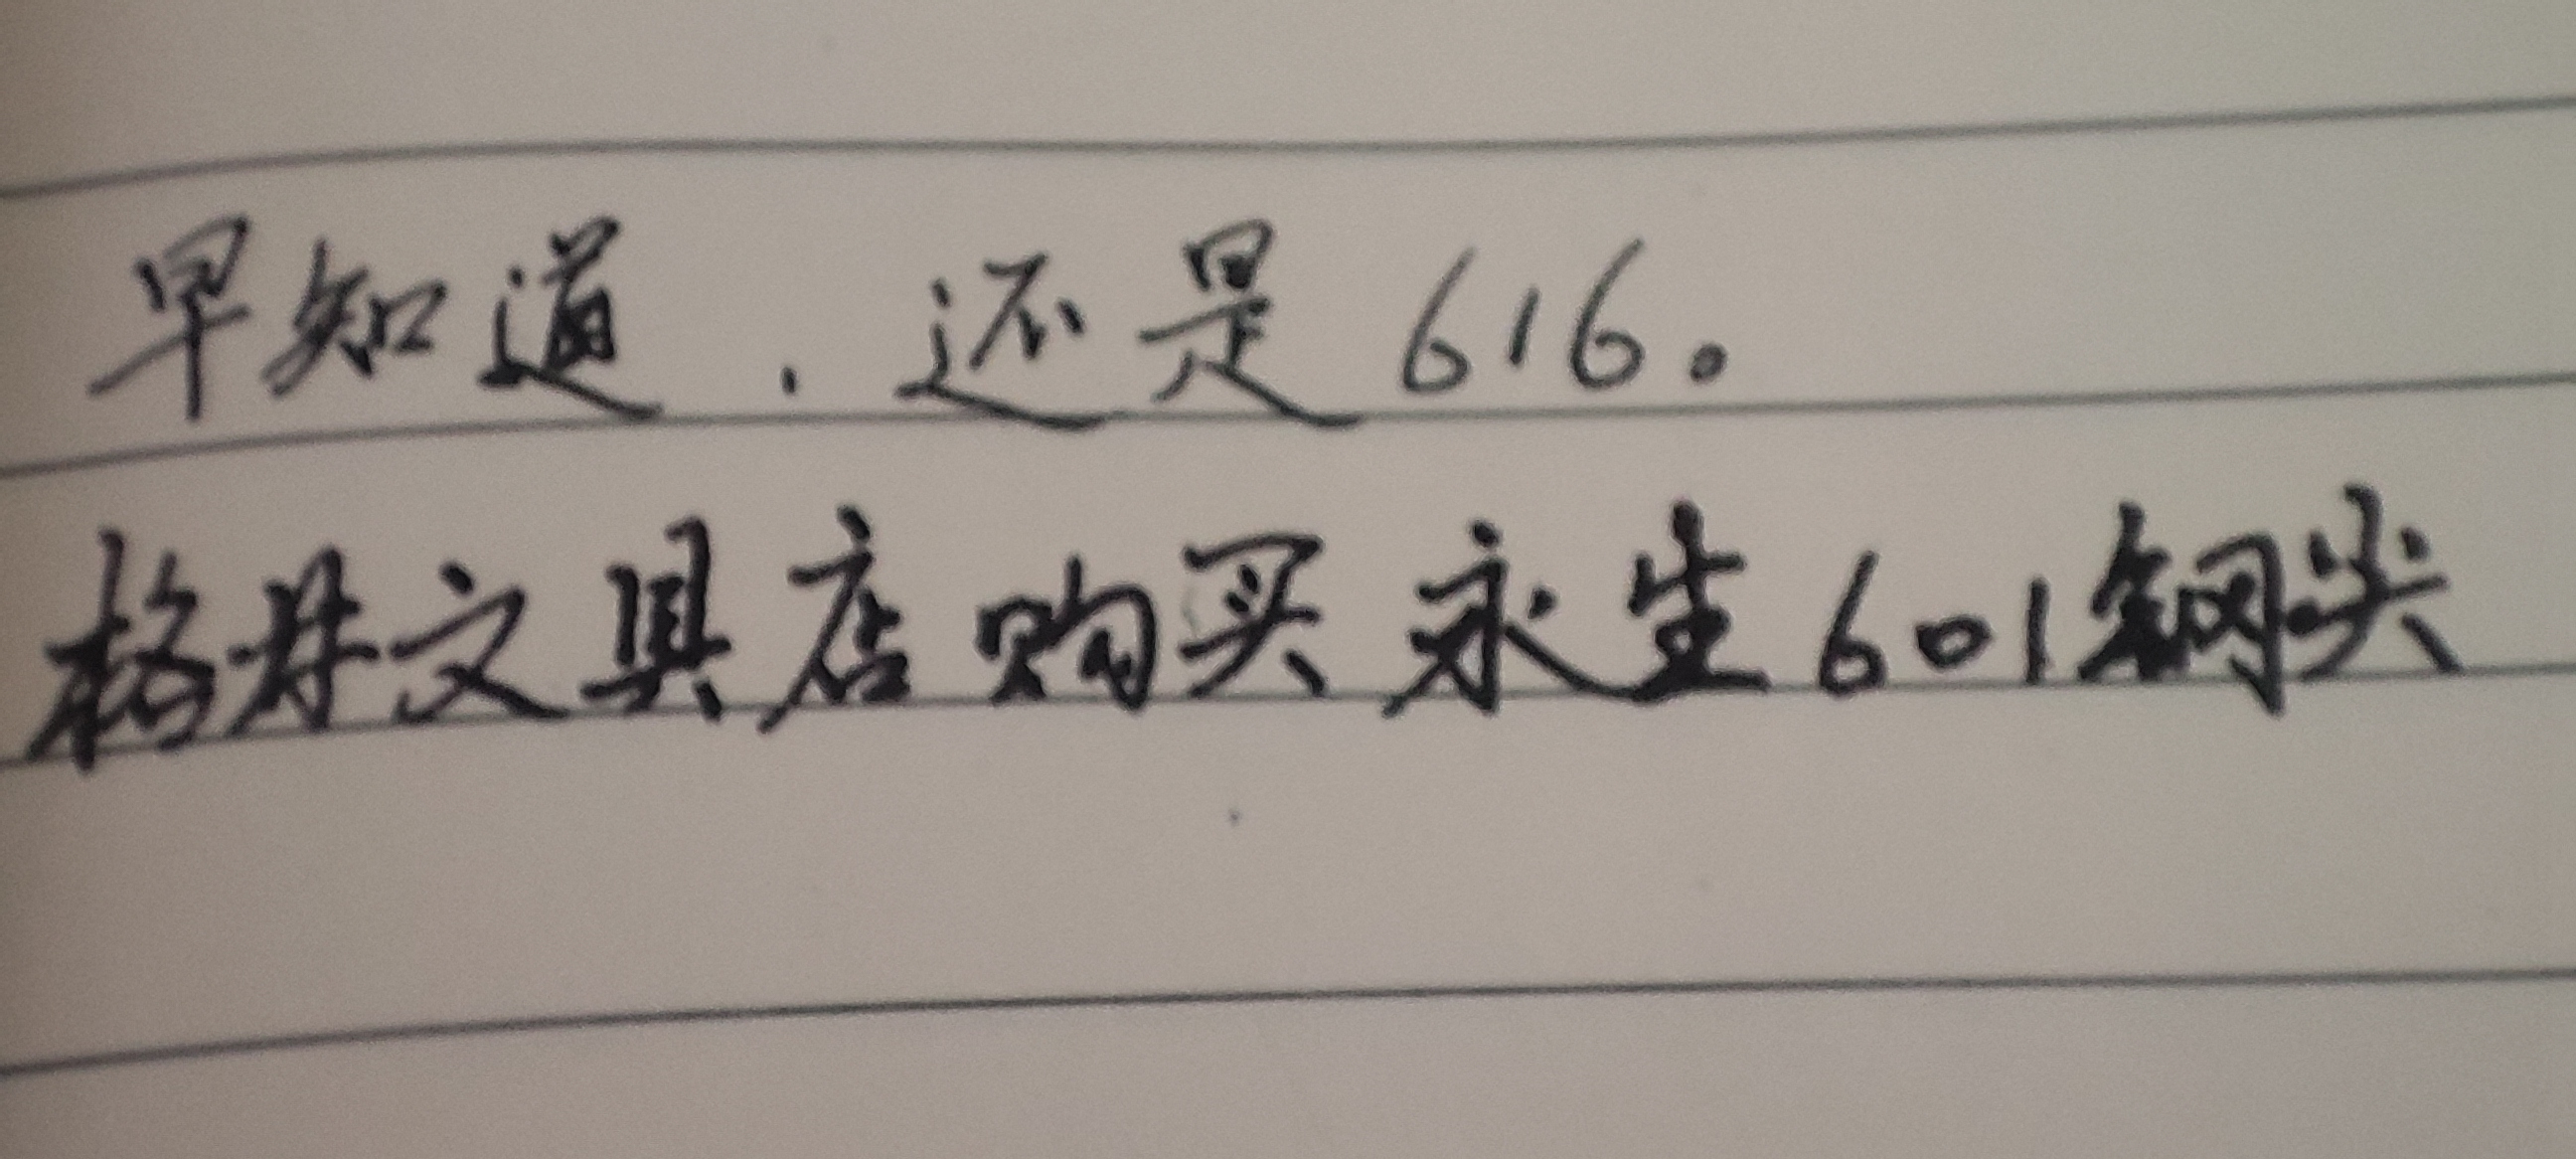 早知道，还是616。
格丹文具店购买永生601钢尖